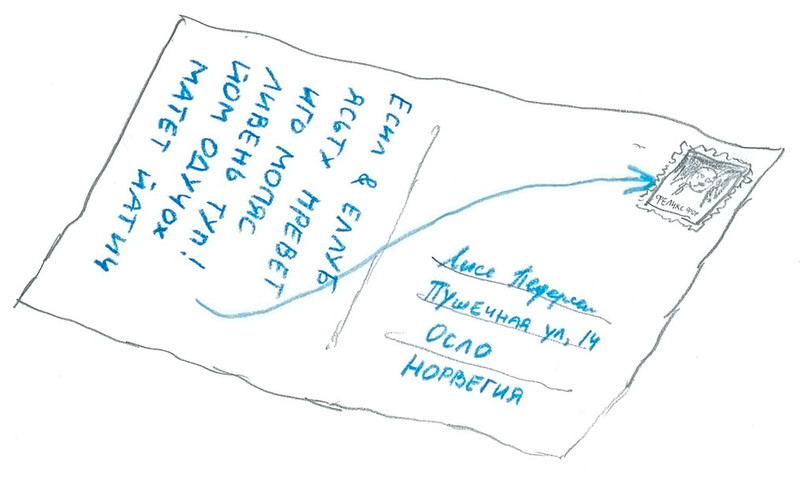 ЕСИЛ & ЕЛЛУБ
ЯСЬТХ ПРЕВЕТ
ИГО МОПЯС
ЛИВЕНЬ ТУП!
ЙОМ ОДУЧОХ
МАТЕТ ЙАТИЧ
Лисе Педерсен
ПУШЕЧНАЯ УЛ, 14
ОСЛО
НОРВЕГИЯ
ФЕЛИКС